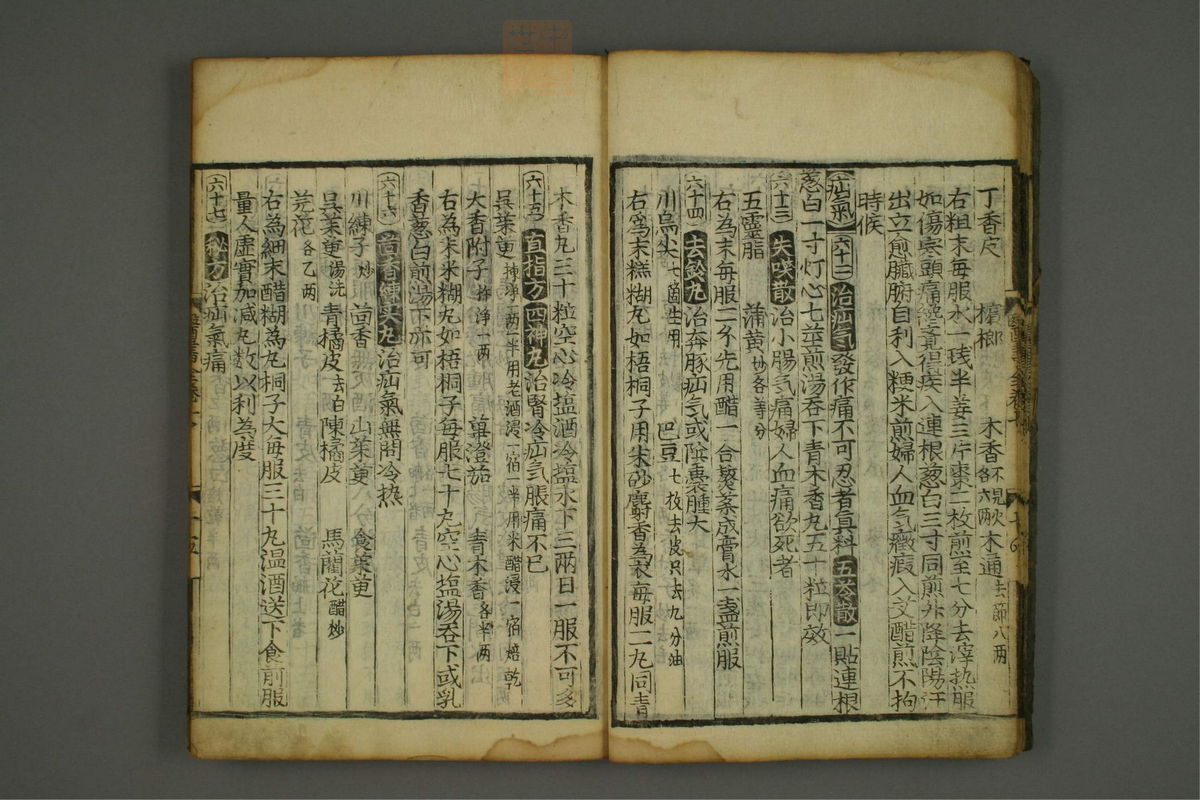 丁香皮 檳榔 木香不見火各六兩 木通去節八兩
右粗末每服水一盞半姜三片棗二枚煎至七分去滓熱服
如傷寒頭痛纔覺得疾入連根葱白三寸同煎升降陰陽汗
出立愈臟腑自利入粳米煎婦人血气癥瘕入艾醋煎不拘
時候
疝氣 六十二 治疝气發作痛不可忍者真料五苓散一貼連根
葱白一寸灯心七莖煎湯吞下青木香丸五十粒即效
六十三 失咲散治小腸气痛婦人血痛欲死者
五靈脂 蒲黄炒各等分
右為末每服二夕先用醋一合熬薬成膏水一盞煎服
六十四 去鈴丸治奔豚疝气或陰囊腫大
川烏尖七箇生用 巴豆七枚去皮只去九分油
右為末糕糊丸如梧桐子用朱砂麝香為衣每服二丸同青
木香丸三十粒空心冷塩酒冷塩水下三兩日一服不可多
六十五 直指方四神丸治腎冷疝气脹痛不已
吳茱萸 兩半用老酒浸一宿一半用米醋浸一宿焙乾
大香附子 淨一兩 蓽澄茄 青木香各半兩
右為末米糊丸如梧桐子每服七十丸空心塩湯吞下或乳
香葱白煎湯下亦可
六十六 茴香練実丸治疝氣無問冷热
川練子炒 茴香 山茱萸 食茱萸
吳茱萸湯洗 青橘皮去白 陳橘皮 馬藺花醋炒
芫花各乙兩
右為細末醋糊為丸桐子大每服三十丸温酒送下食前服
量人虚實加減丸数以利為度
六十七 秘方治疝氣痛